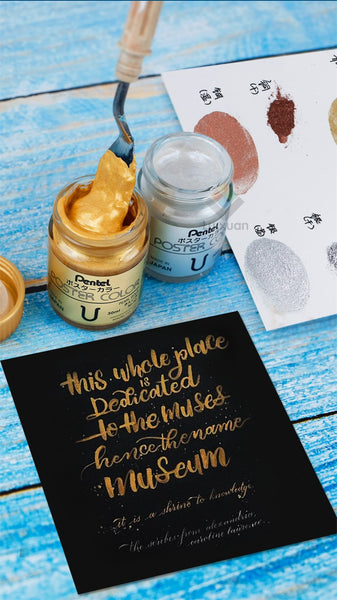 Pentel
ポスターカラー
POSTER COLOR
U
30ml
Pentel
ポスターカラー
POSTER COLOR
JAPAN
U
xuan
this whole place
is
Dedicated
to the muses
hence the name
museum
it is a shrine to knowledge
the scribes from alexandria